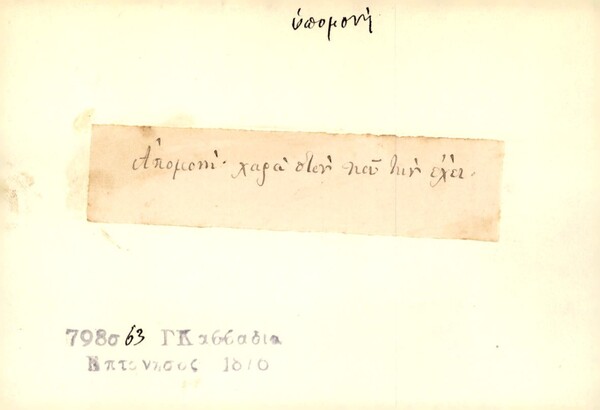 ὑπομονή
Ἀπομονή· χαρὰ στὸν ποῦ τὴν ἔχει.
798σ 63 ΓΚασσαδια
Επτανησος 1876